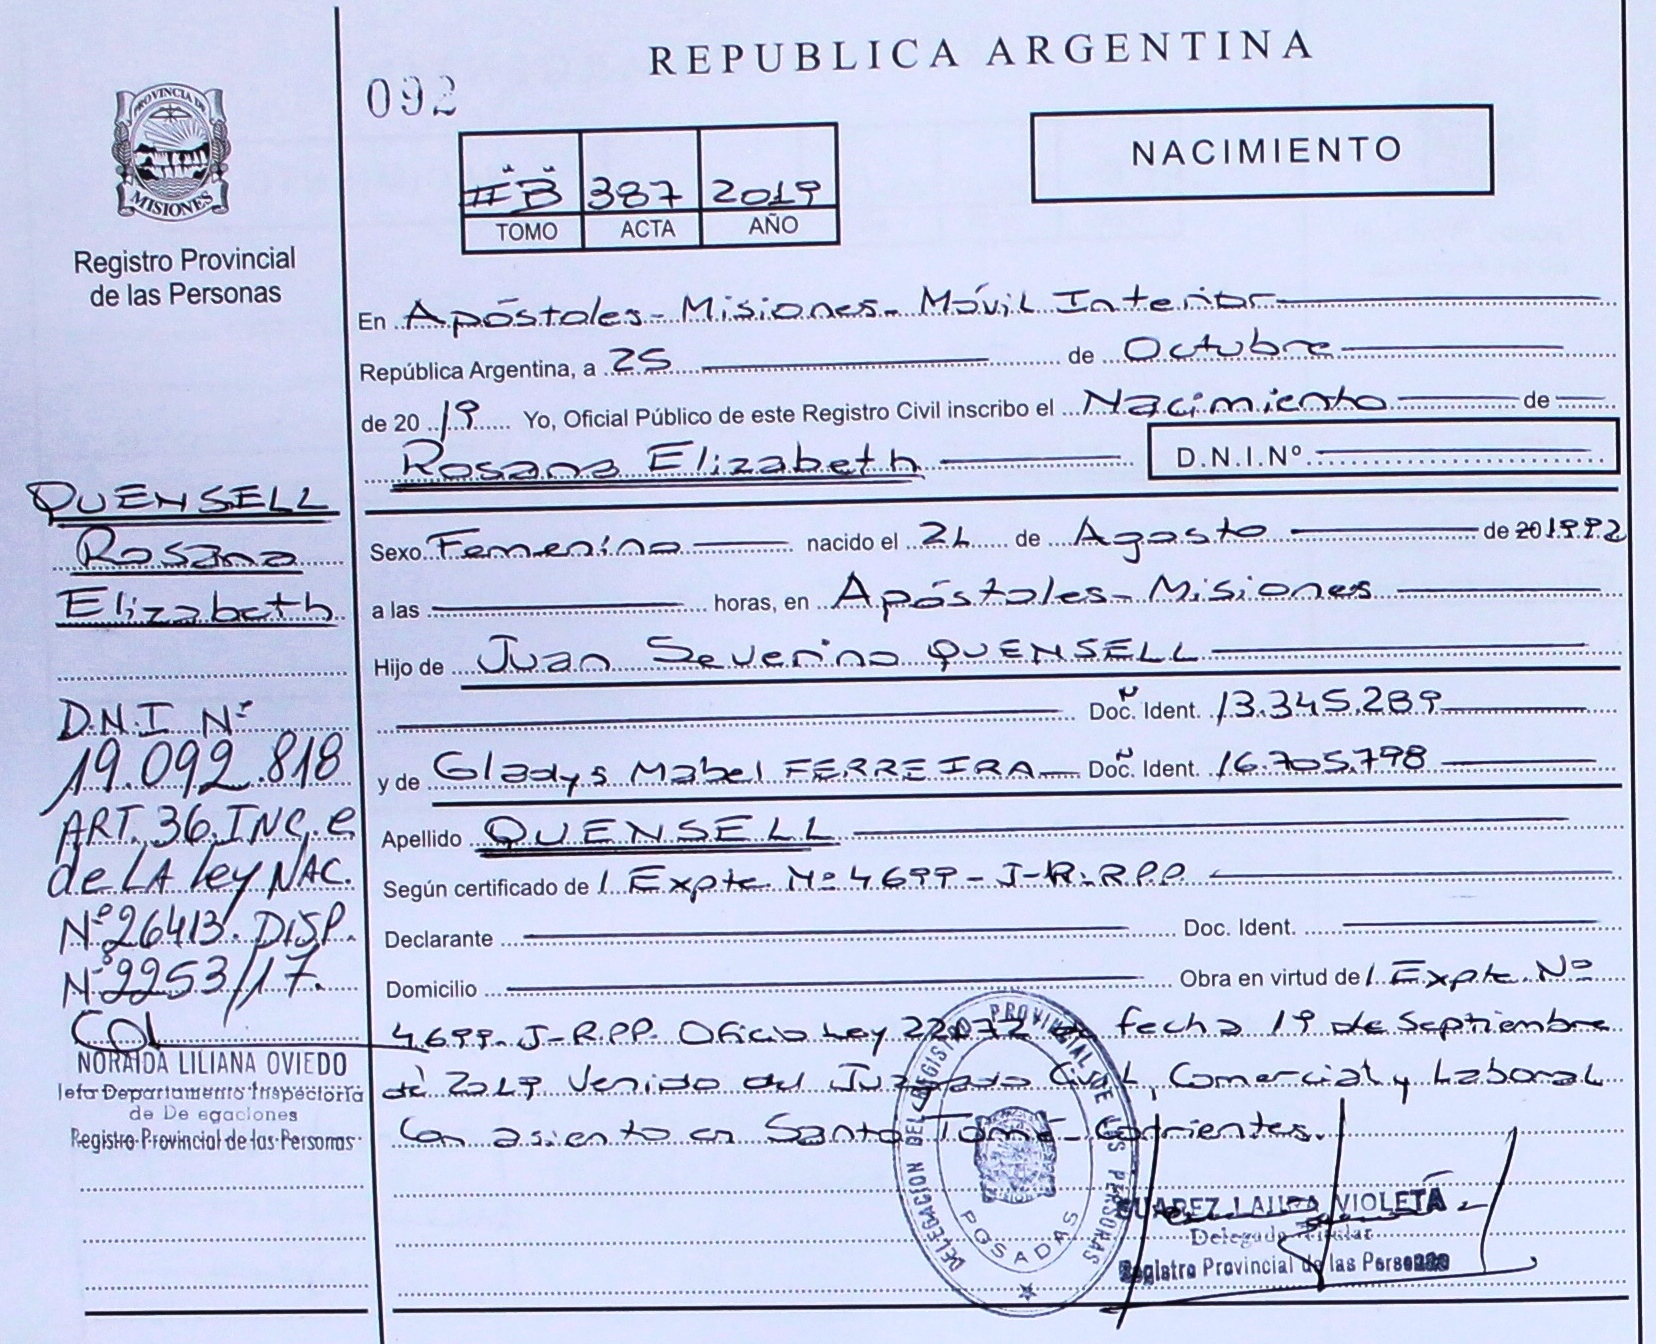 PROVINCIA DE
MISIONES
Registro Provincial
de las Personas
QUENSELL
Rosana
Elizabeth
D.N.I Nº
19.092.818
ART. 36. INC. e
de LA ley NAC.
Nº 26413. DISP.
Nº 2253/17.
NORAIDA LILIANA OVIEDO
Departamento Inspectoria
de De egaciones
Registro Provincial de las Personas
REPUBLICA ARGENTINA
092
NACIMIENTO
"B" 387 2019
TOMO ACTA AÑO
En Apóstoles - Misiones - Móvil Interior
República Argentina, a 25 de Octubre
de 20 19 Yo, Oficial Público de este Registro Civil inscribo el Nacimiento de
Rosana Elizabeth D.N.I.Nº
Sexo Femenino nacido el 21 de Agosto de 20 1992
a las horas, en Apóstoles - Misiones
Hijo de Juan Severino QUENSELL
Doc. Ident. 13.345.289
y de Gladys Mabel FERREIRA Doc. Ident. 16.705.798
Apellido QUENSELL
Según certificado de Expte. Nº 4699 - J-R.P.P.
Declarante Doc. Ident.
Domicilio Obra en virtud de Expte Nº
4699-J-R.P.P. Oficio Ley 22072 fecha 19 de Septiembre
de 2019 venido del Juzgado Civil, Comercial y Laboral
con asiento en Santo Tomé - Corrientes.
DELEGACION DEL REGISTRO PROVINCIAL DE LAS PERSONAS
POSADAS
SUAREZ LAURA VIOLETA
Delegado Titular
Registro Provincial de las Personas